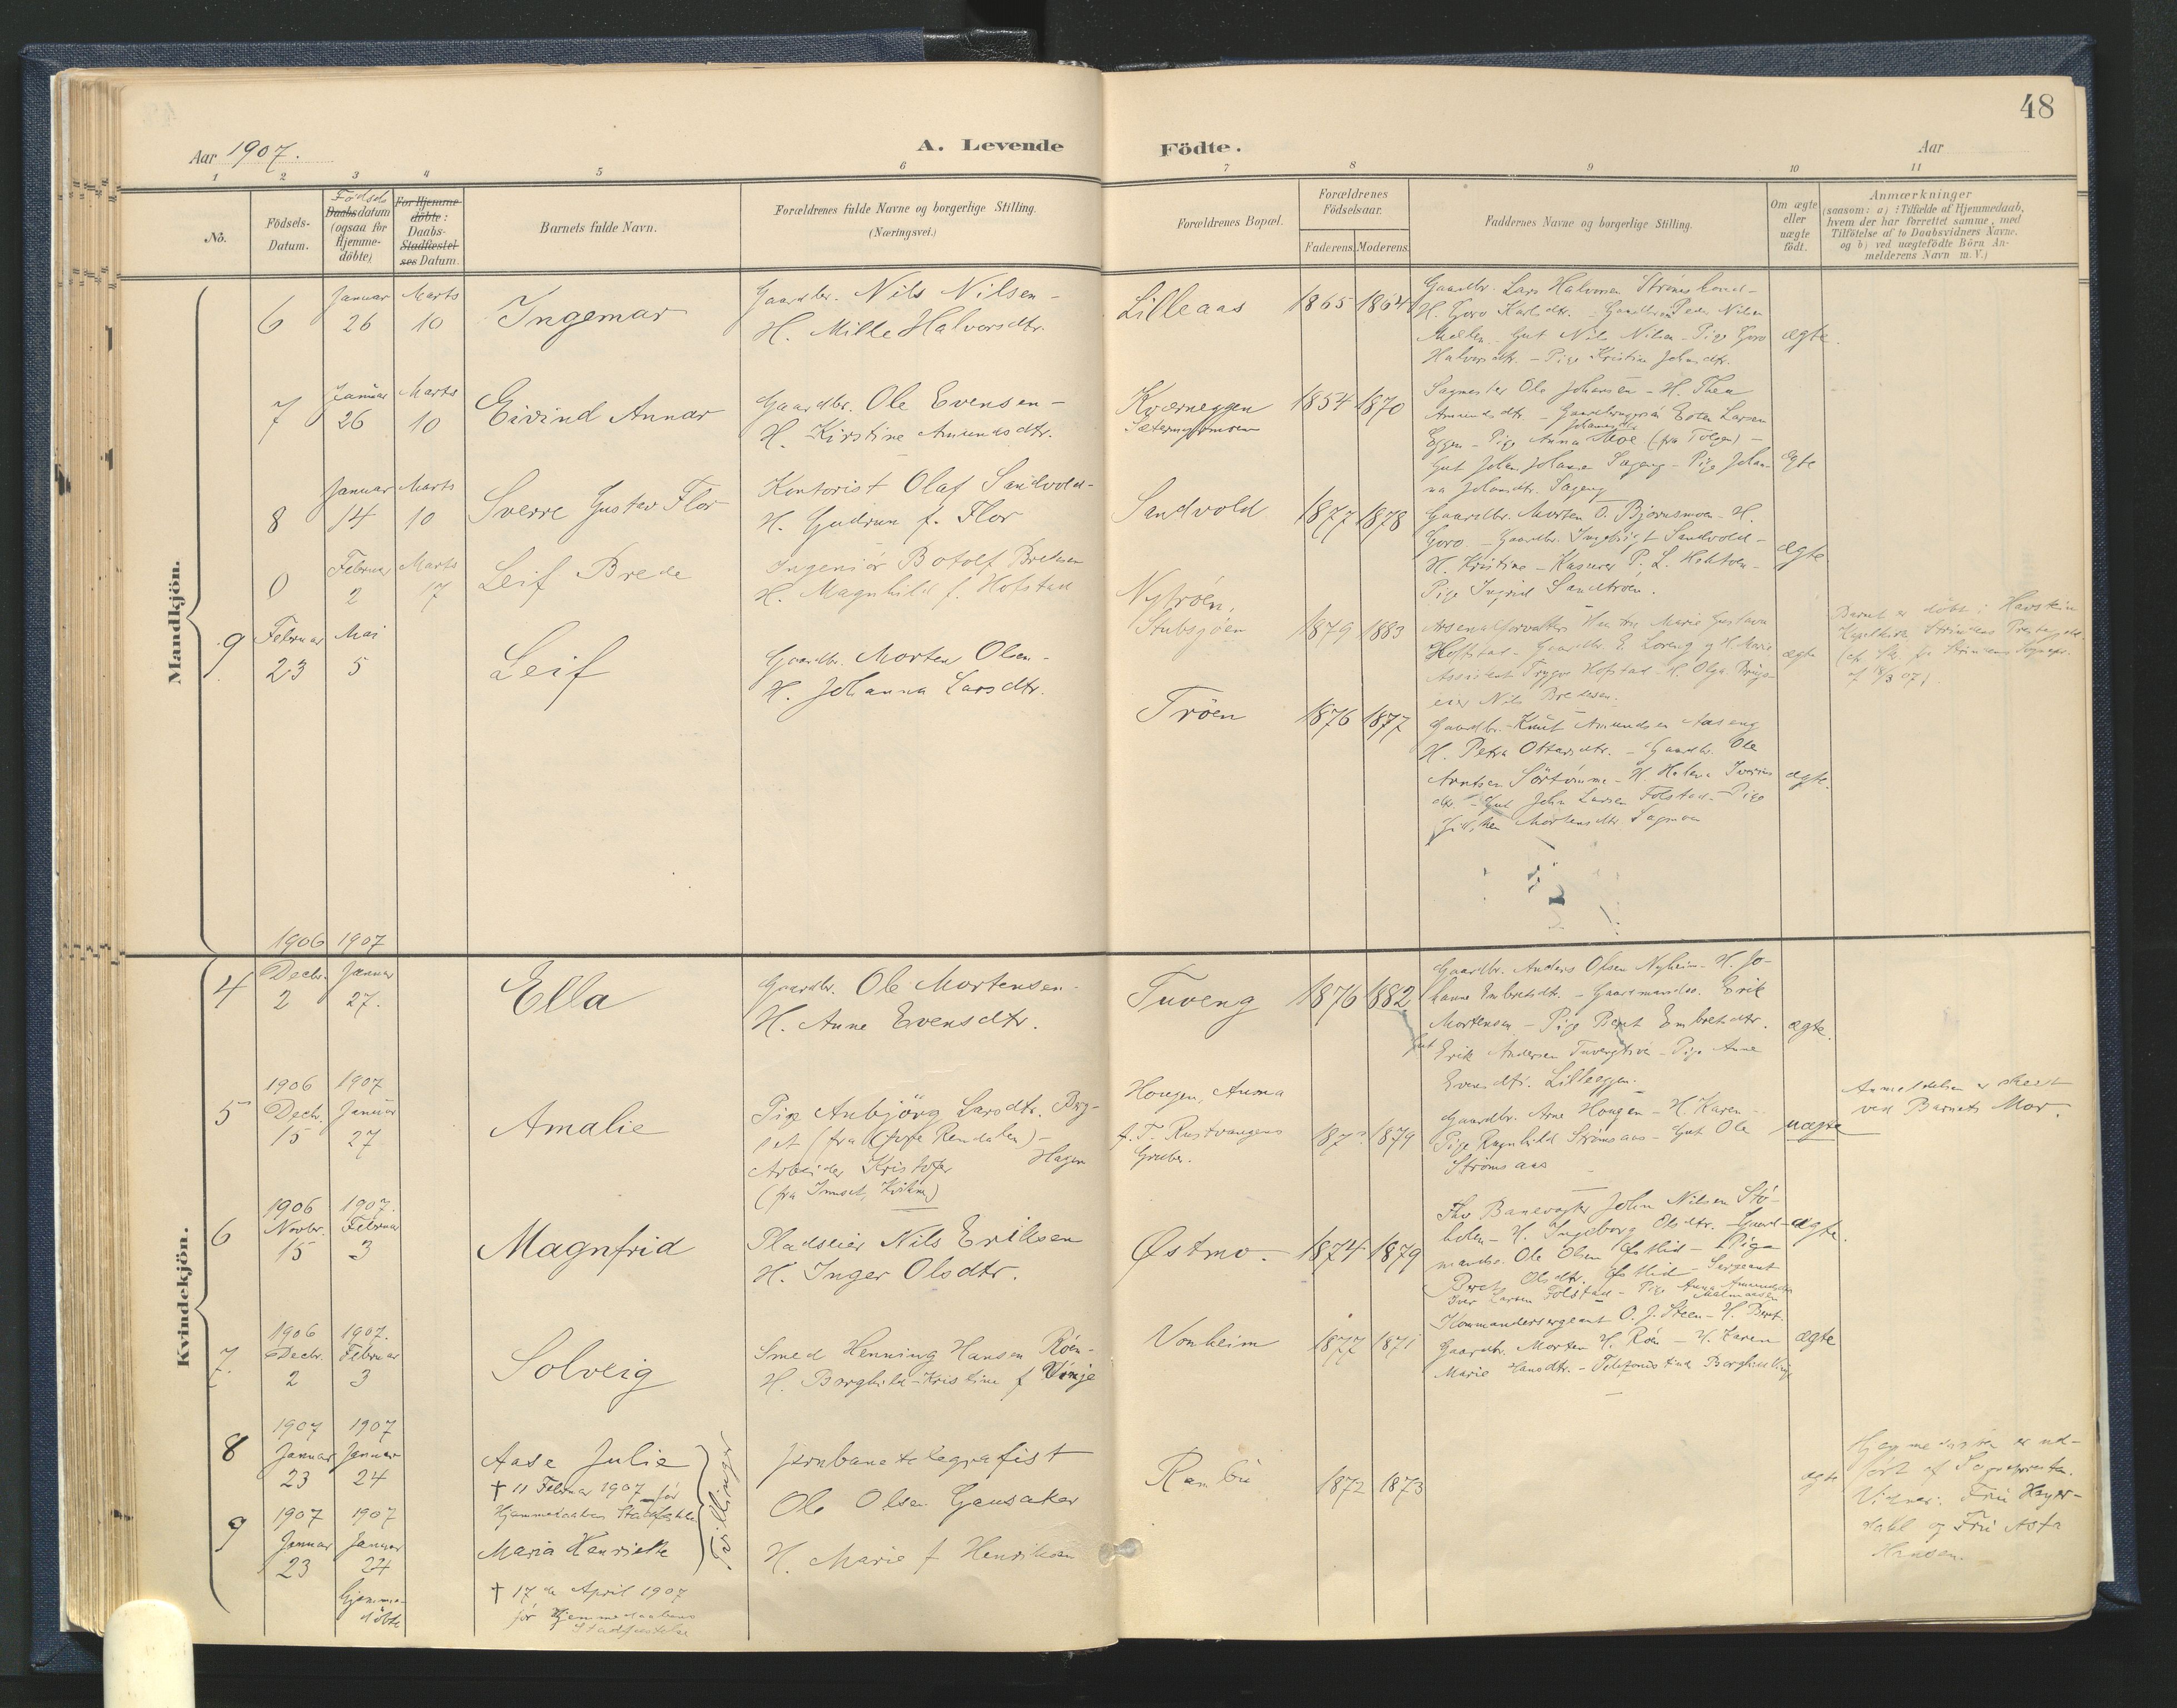 48
Aar 1907.
A. Levende Födte.
Aar
1 2 3 4 5 6 7 8 9 10 11
No.
Födsels-
Datum.
Födsels
Daabsdatum
(ogsaa for
Hjemme-
döbte)
For Hjemme-
döbte:
Daabs-
Stadfæstel-
ses Datum.
Barnets fulde Navn.
Forældrenes fulde Navne og borgerlige Stilling.
(Næringsvei.)
Forældrenes Bopæl.
Forældrenes
Födselsaar.
Faderens. Moderens.
Faddernes Navne og borgerlige Stilling.
Om ægte
eller
uægte
födt.
Anmærkninger
(saasom: a) i Tilfælde af Hjemmedaab,
hvem der har forrettet samme, med
Tilföielse af to Daabsvidners Navne,
og b) ved uægtefödte Börn An-
melderens Navn m. V.)
Mandkjön.
6
Januar
26
Marts
10
Ingemar
Gaardbr. Nils Nilsen -
H. Milke Halvorsdtr.
Lilleaas
1865 1864
Gaardbr. Lars Halvorsen
H. Goro Karlsdtr. - Peder Nilsen
- Gut Nils Nilsen - Pige Goro
Halvorsdtr. - Pige Kristine Johnsdtr.
ægte.
7
Januar
26
Marts
10
Eivind Annar
Gaardbr. Ole Evensen -
H. Kirstine Amundsdtr.
Kværneggen
1854 1870
Sagmester Ole Johansen - H. Thea
Amundsdtr. - Esten Larsen
Eggen - Pige Anna Moe (fra Tolgen) -
Gut Johan Johansen Sageng - Pige Johan-
na Johansdtr. Sageng
ægte
8
Januar
14
Marts
10
Sverre Gustav Flor
Kontorist Olaf Sandvold -
H. Gudrun f. Flor
Sandvold
1877 1878
Gaardbr. Morten O. Bjørnsmoen - H.
Goro - Gaardbr. Ingebrigt Sandvold -
H. Kristine - Kasserer P. L.
Pige Ingrid Sandtrøen.
ægte
0
Februar
2
Marts
17
Leif Brede
Ingeniör Botolf Bredesen
H. Magnhild f. Hofstad
Nytrøen,
Stubsjøen
1879 1883
Arsenalforvalter Marie Gustava
Hofstad - Gaardbr. E. Loreng og H. Marie
Assistent Trygve Hofstad - H. Olga
eier Nils Bredesen.
ægte
Barnet er döbt i Havstein
Strindens
af 18/3 07).
9
Februar
23
Mai
5
Leif
Gaardbr. Morten Olsen -
H. Johanna Larsdtr.
Trøen
1876 1877
Gaardbr. Knut Amundsen Aaseng
H. Petra Ottarsdtr. - Gaardbr. Ole
Arntsen Sörtömme - H. Helena Ivers
dtr. - Gut John Larsen Tolstad - Pige
Mortensdtr. Sagmoen
ægte.
Kvindekjön.
4
1906
Decbr.
2
1907
Januar
27.
Ella
Gaardbr. Ole Mortensen -
H. Anne Evensdtr.
Tuveng
1876 1882
Gaardbr. Anders Olsen Nyheim - H. Jo-
hanne Embretsdtr. - Gaardmandss. Erik
Mortensen - Pige Berit Embretsdtr.
Gut Erik Andersen - Pige Anne
Evensdtr. Lilleeggen.
ægte.
5
1906
Decbr.
15
1907
Januar
27
Amalie
Pige Anbjörg Larsdtr. Berg-
set (fra Öfre Rendalen) -
Arbeider Kristofer Hagen
(fra Innset, Kvikne)
Hougen, Auma
f. T. Rustvangens
Gruber.
187? 1879
Gaardbr. Arne Hougen - H. Karen -
Pige Ragnhild Strömsaas - Gut Ole
Strömsaas
uægte
Anmeldelsen er skeet
ved Barnets Mor.
6
1906
Novbr.
15
1907.
Februar
3
Magnfrid
Pladseier Nils Eriksen
H. Inger Olsdtr.
Østmo.
1874 1879
Fhv Banevogter John Nilsen Stö-
holen - H. Ingeborg Olsdtr. - Gaard-
mands. Ole Olsen Østlid - Pige
Berit Olsdtr. Østlid - Sergeant
Iver Larsen Tolstad - Pige Anna Amundsdtr.
Malmaasen
ægte.
7.
1906
Decbr.
2
1907.
Februar
3
Solveig
Smed Henning Hansen Röen -
H. Borghild Kristine f. Vinje
Vonheim
1877 1871
Kommandersergeant O. J. Steen - H. Berit.
Gaardbr. Morten H. Röen - H. Karen
Marie Hansdtr. - Telefonbestinde Borghild Vinje
ægte
8
1907
Januar
23
1907
Januar
24
Aase Julie
† 11 Februar 1907 för
Hjemmedaabens Stadfæstelse
Tvillinger
Jernbanetelegrafist
Ole Olsen Gausaker
H. Marie f. Henriksen
Rambu
1872 1873
ægte
Hjemmedaaben er ud-
fört af Sogneprest
Vidner: Fru Heyer-
dahl og Fru Asta
Hansen.
9
1907
Januar
23
1907
Januar
24
Hjemme-
döbte
Maria Henriette
† 17 de April 1907
för Hjemmedaabens
Stadfæstelse